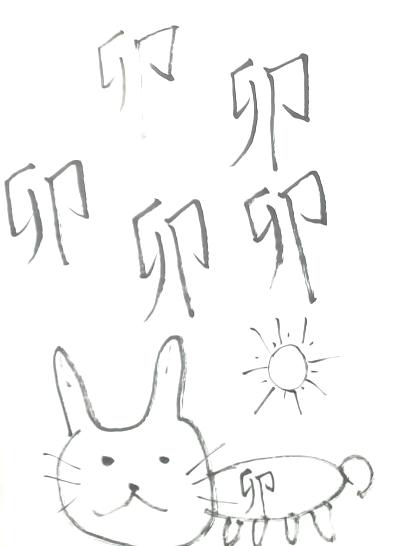 卯
卯
卯
卯
卯
卯